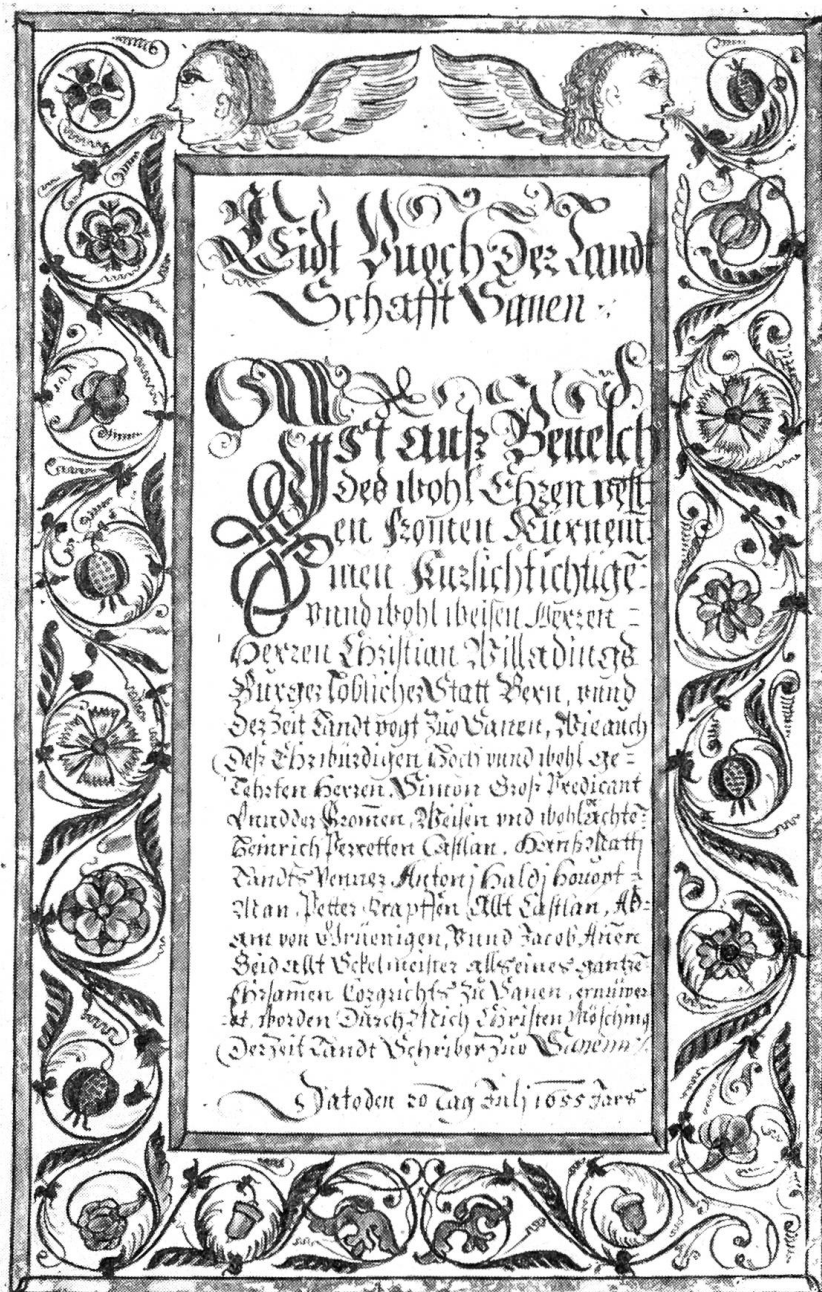 Eidt Buoch Der Landt
Schafft Sanen
Ist auß Beuelch
des wohl Ehren vest
en From̄en Fürnem̄
men Fürsichtichtigē
vnnd wohl weisen Herren
Herren Christian Willadings
Burger Loblicher Statt Bern, vnnd
der Zeit Landt vogt Zuo Sanen, Wie auch
Deß Ehrwürdigen Hoch vnnd wohl ge=
Lehrten Herren, Simon Groß Predicant
Vnnd der From̄en, Weisen vnd wohl Achtē
Heinrich Perretten Castlan, Hanß Matti
Landts Venner Antonj Haldj Houpt=
Man, Petter Krapffen Allt Castlan, Ad=
am von Grüenigen, Vnnd Jacob
allt Seckelmeister alls eines gantzē
Ehrsamen Corgrichts Zu Sanen, ernüwer=
et, worden Durch Mich Christen Mösching
Der Zeit Landt Schriber Zuo Sanenn
Dato den 20 Tag Julj 1655 Jars